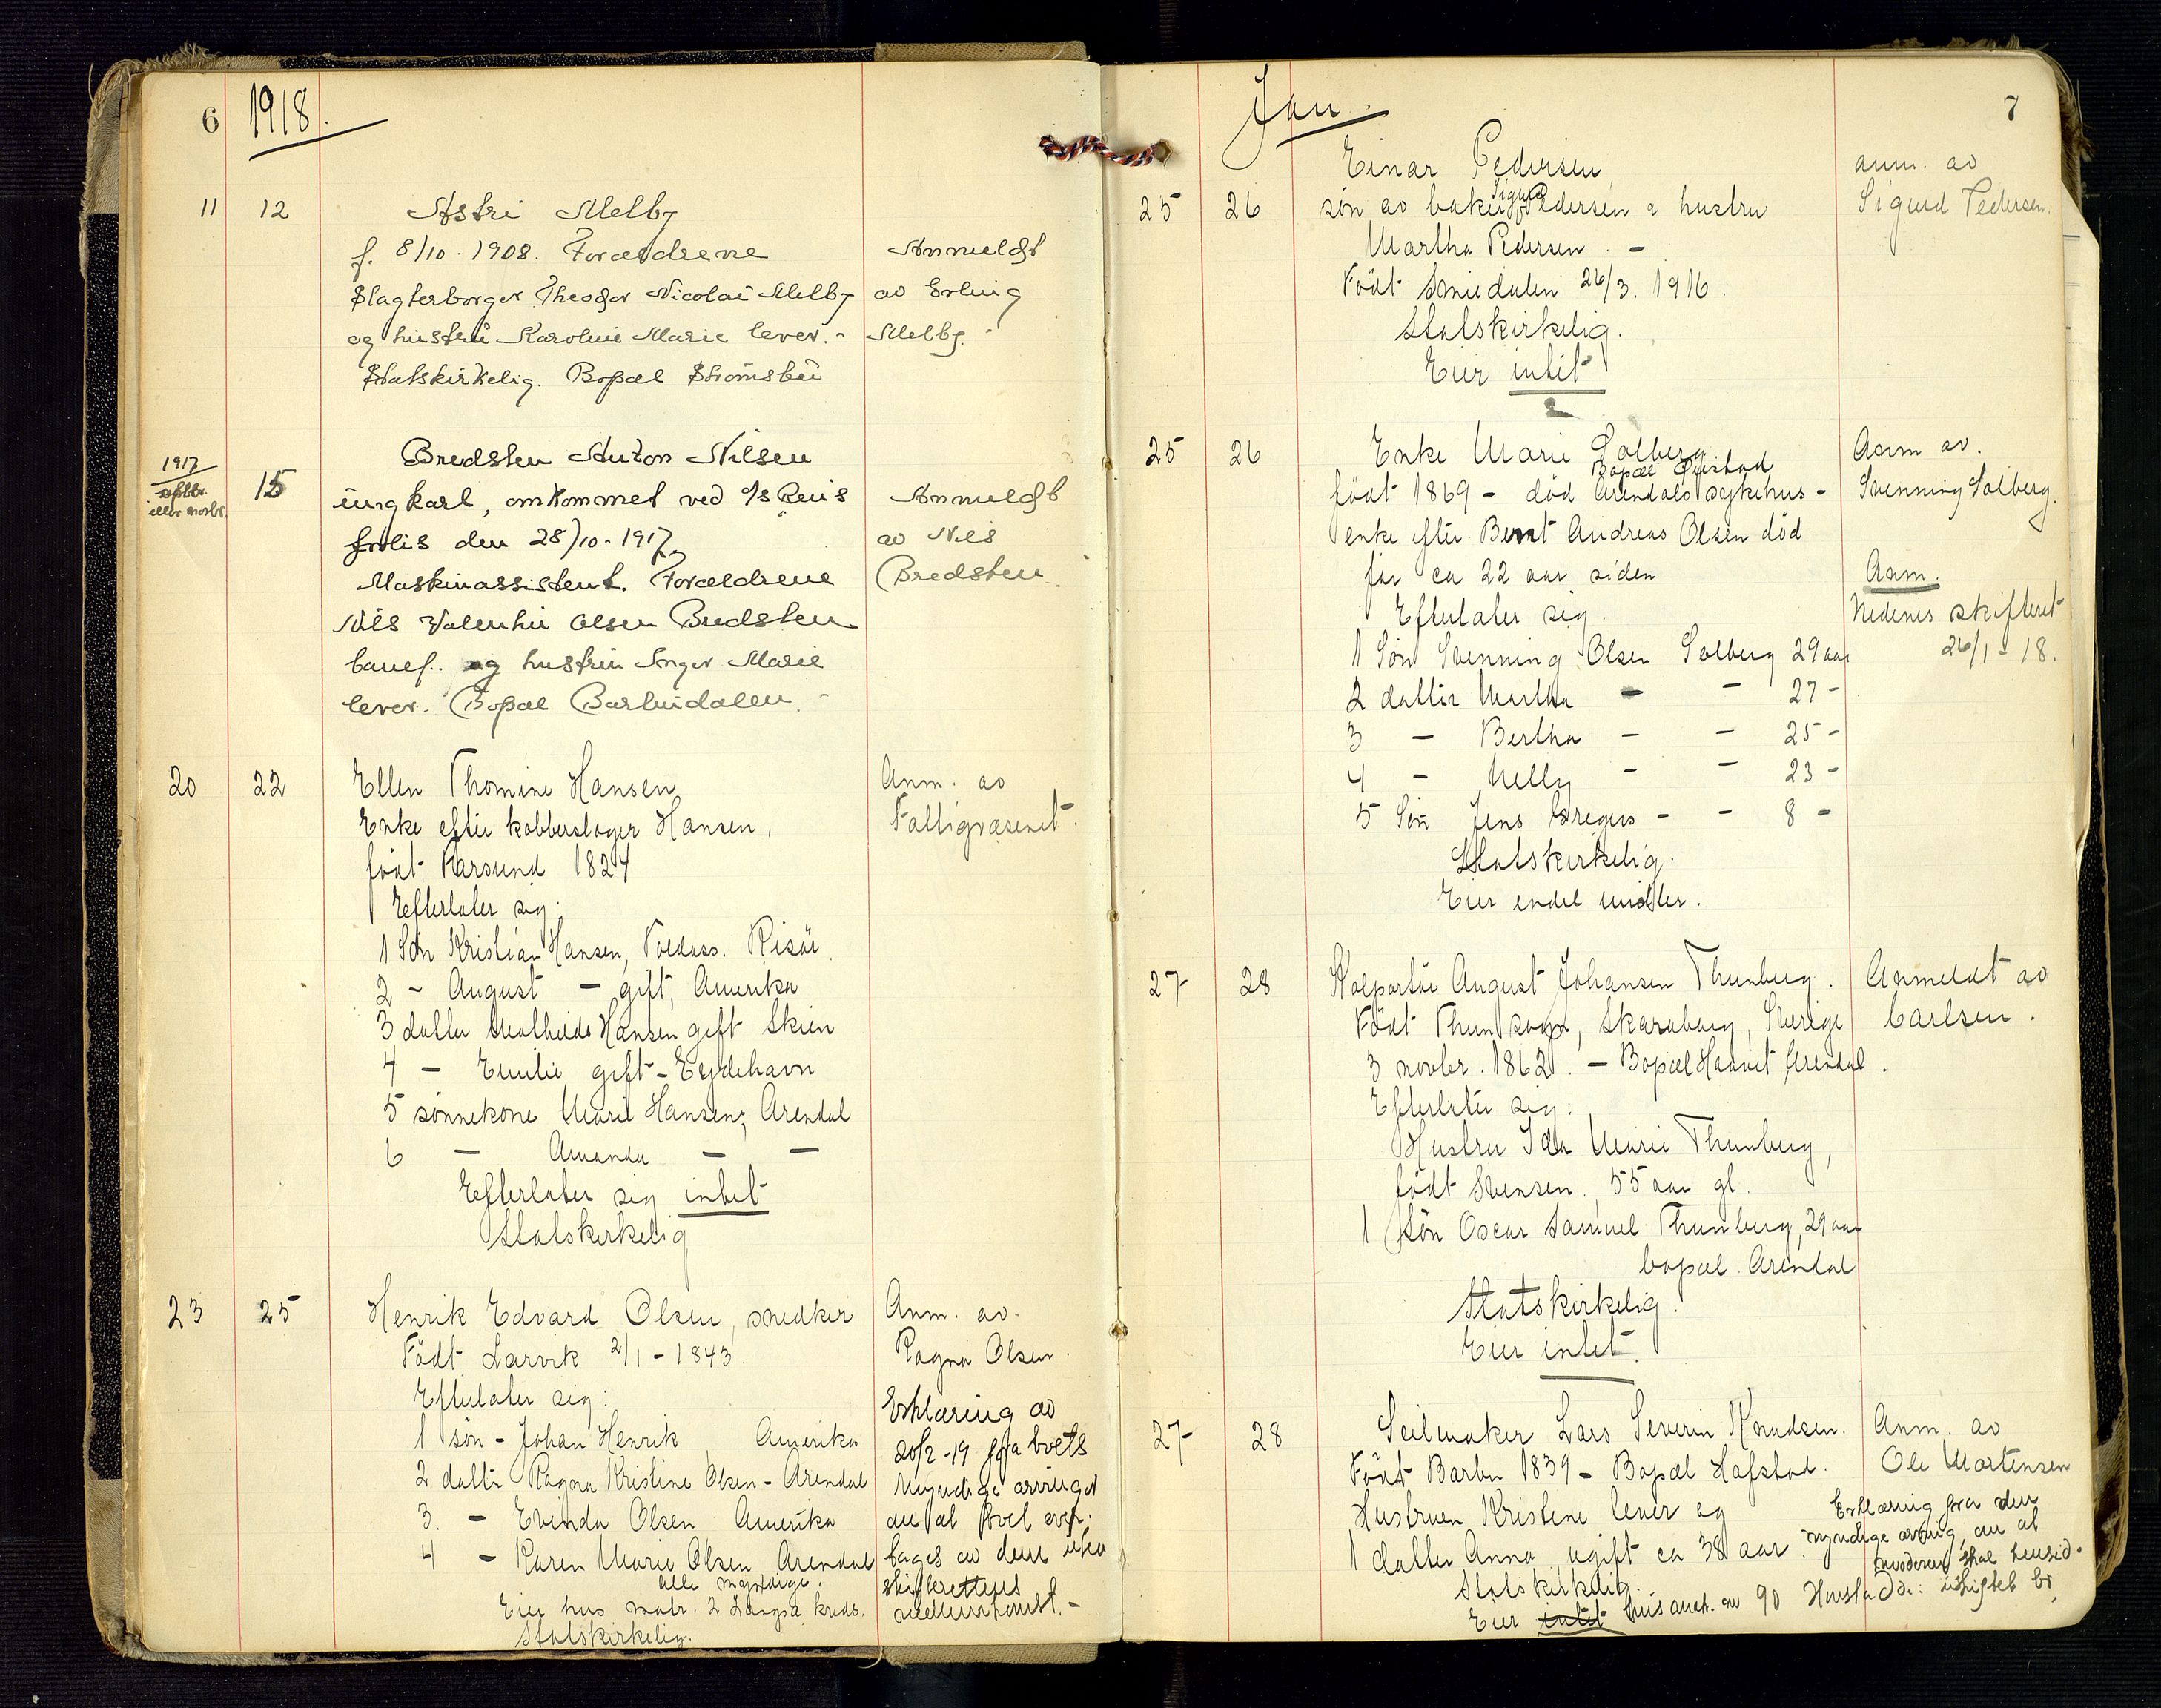 6 1918.
11 12 Astri Melby
f. 8/10. 1908. Forældrene Anmeldt
Slagterborger Theodor Nicolai Melby av Erling
og hustru Karoline Marie lever. - Melby.
Statskirkelig. Bopæl Strömsbu
1917 15 Bredsten Anton Nilsen
eller novbr. ungkarl, omkommet ved s/s Anmeldt
forlis den 28/10 - 1917. av Nils
Maskinassistent. Forældrene Bredsten.
Nils Valentin Olsen Bredsten
og hustru Inger Marie
lever. Bopæl Barbudalen. -
20 22 Ellen Thomine Hansen Anm. av
Enke efter kobberslager Hansen, Fattigvæsenet.
född Farsund 1824
Efterlater sig:
1 Sön Kristian Hansen, Toldass. Risör.
2 - August - gift, Amerika
3 datter Mathilde Hansen gift Skien
4 - Emilie gift - Eydehavn
5 sönnekone Marie Hansen, Arendal
6 - Amanda - -
Efterlater sig intet
Statskirkelig
23 25 Henrik Edvard Olsen, snedker Anm. av.
Födt Larvik 2/1 - 1843. Ragna Olsen.
Efterlater sig:
1 sön - Johan Henrik, Amerika
2 datter Ragna Kristine Olsen - Arendal
3. - Evinda Olsen Amerika
4 - Karen Marie Olsen Arendal
alle myndige.
Eier hus matr. 2 Langsæ kreds.
Statskirkelig.
Erklæring av
20/2 -19 fra boets
myndige arvinger
om at boet over-
tages av dem uten
skifterettens
mellemkomst. -
Jan. 7
Einar Pedersen, anm. av
25 26 sön av baker Sigurd Pedersen & hustru Sigurd Pedersen.
Martha Pedersen. -
Födt Smedalen 26/3. 1916.
Statskirkelig.
Eier intet
25 26 Enke Marie Solberg Anm av.
Bopæl Öiestad
födt 1869 - död Arendals sykehus - Svenning Solberg.
enke efter Bernt Andreas Olsen död
for ca 22 aar siden Anm.
Efterlater sig. Nedenes skifteret
1 Sön Svenning Olsen Solberg 29 aar 26/1 - 18.
2 datter Martha - - 27 -
3 - Bertha - - 25 -
4 - Nelly - - 23 -
5 Sön Jens Gregers - - 8 -
Statskirkelig.
Eier endel midler.
27 28 Kolportör August Johansen Thunberg. Anmeldt av
Födt Thun sogn, Skaraborg, Sverige Carlsen.
3 novbr. 1862. - Bopæl Havnet Arendal.
Efterlater sig:
Hustru Ida Marie Thunberg,
födt Svensen. 55 aar gl.
1 Sön Oscar Samuel Thunberg, 29 aar
bopæl. Arendal
Statskirkelig.
Eier intet.
27 28 Seilmaker Lars Severin Knudsen. Anm. av
Födt Barbu 1839 - Bopæl Hafstad. Ole Mortensen
Hustruen Kristine lever og
1 datter Anna ugift ca 38 aar.
Statskirkelig.
Eier intet hus 90
Erklæring fra den
myndige arving, om at
moderen skal hensid-
de i uskiftet bo.